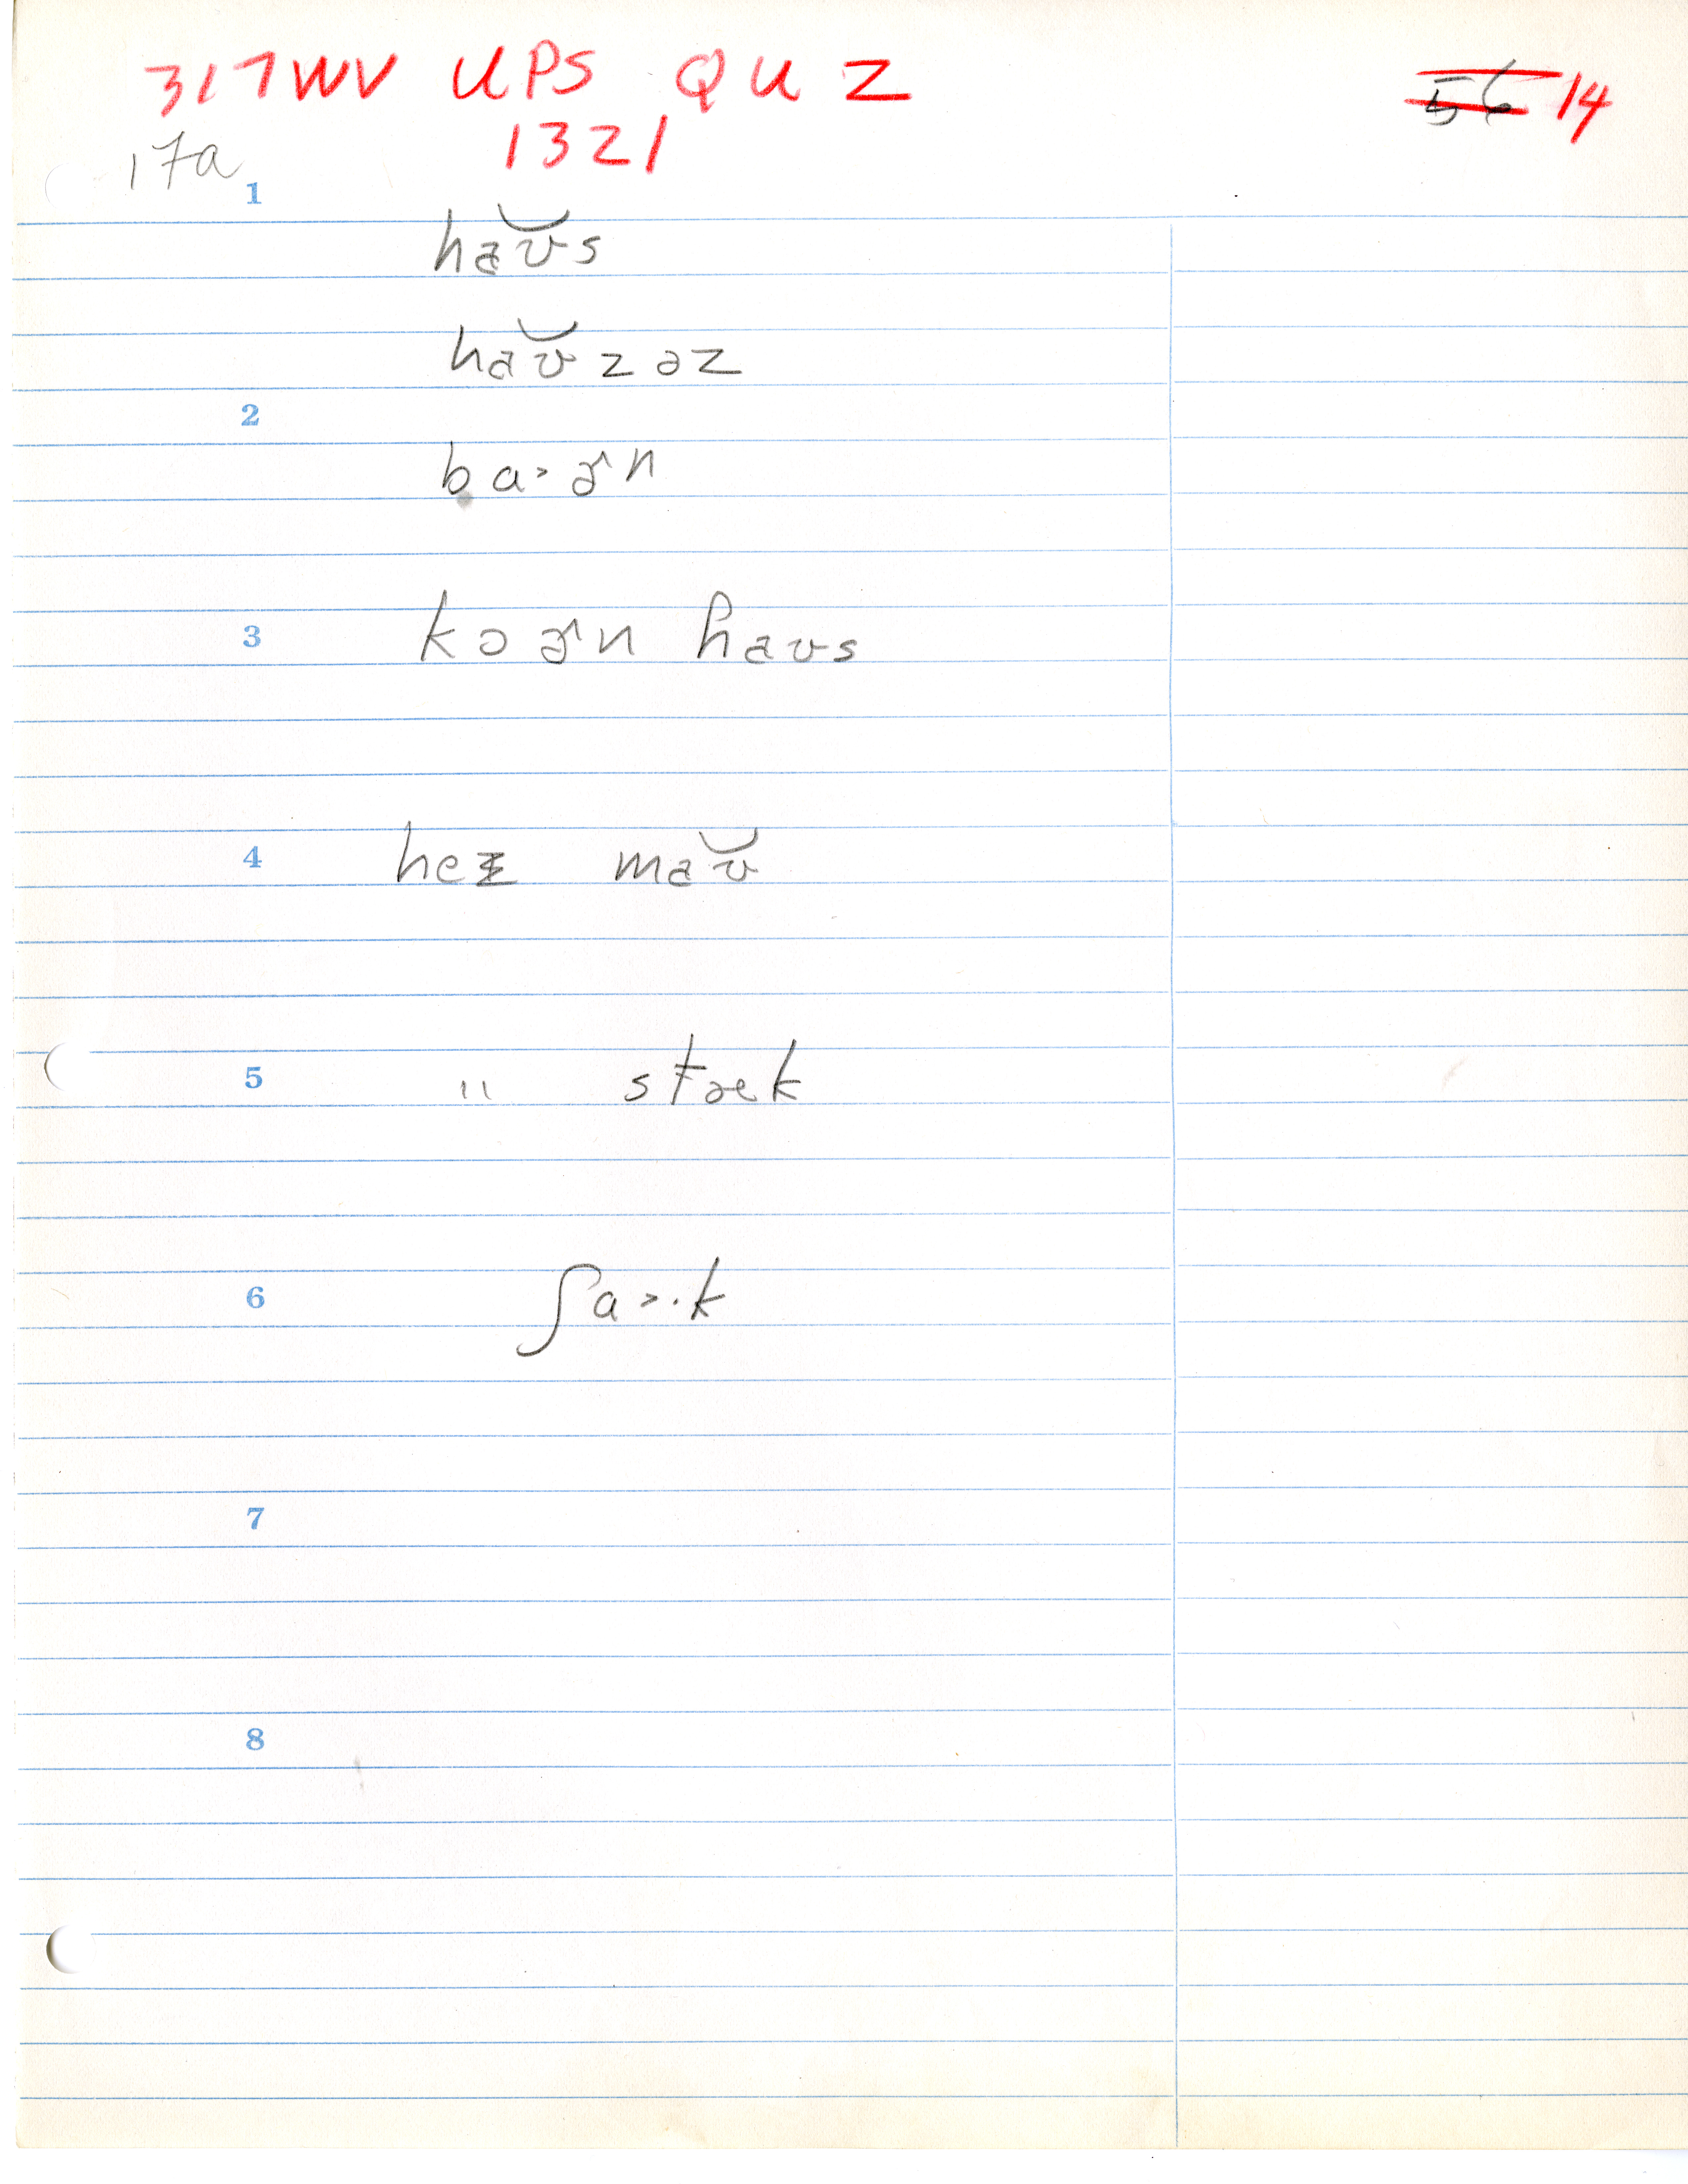 317WV UPS QUZ
1321
56 14
17a
1
haʊ̆s
haʊ̆zəz
2
ba>ɚn
3 kɔɚn haʊs
4 heɪ maʊ̆
5 " stæk
6 ʃa>·k
7
8